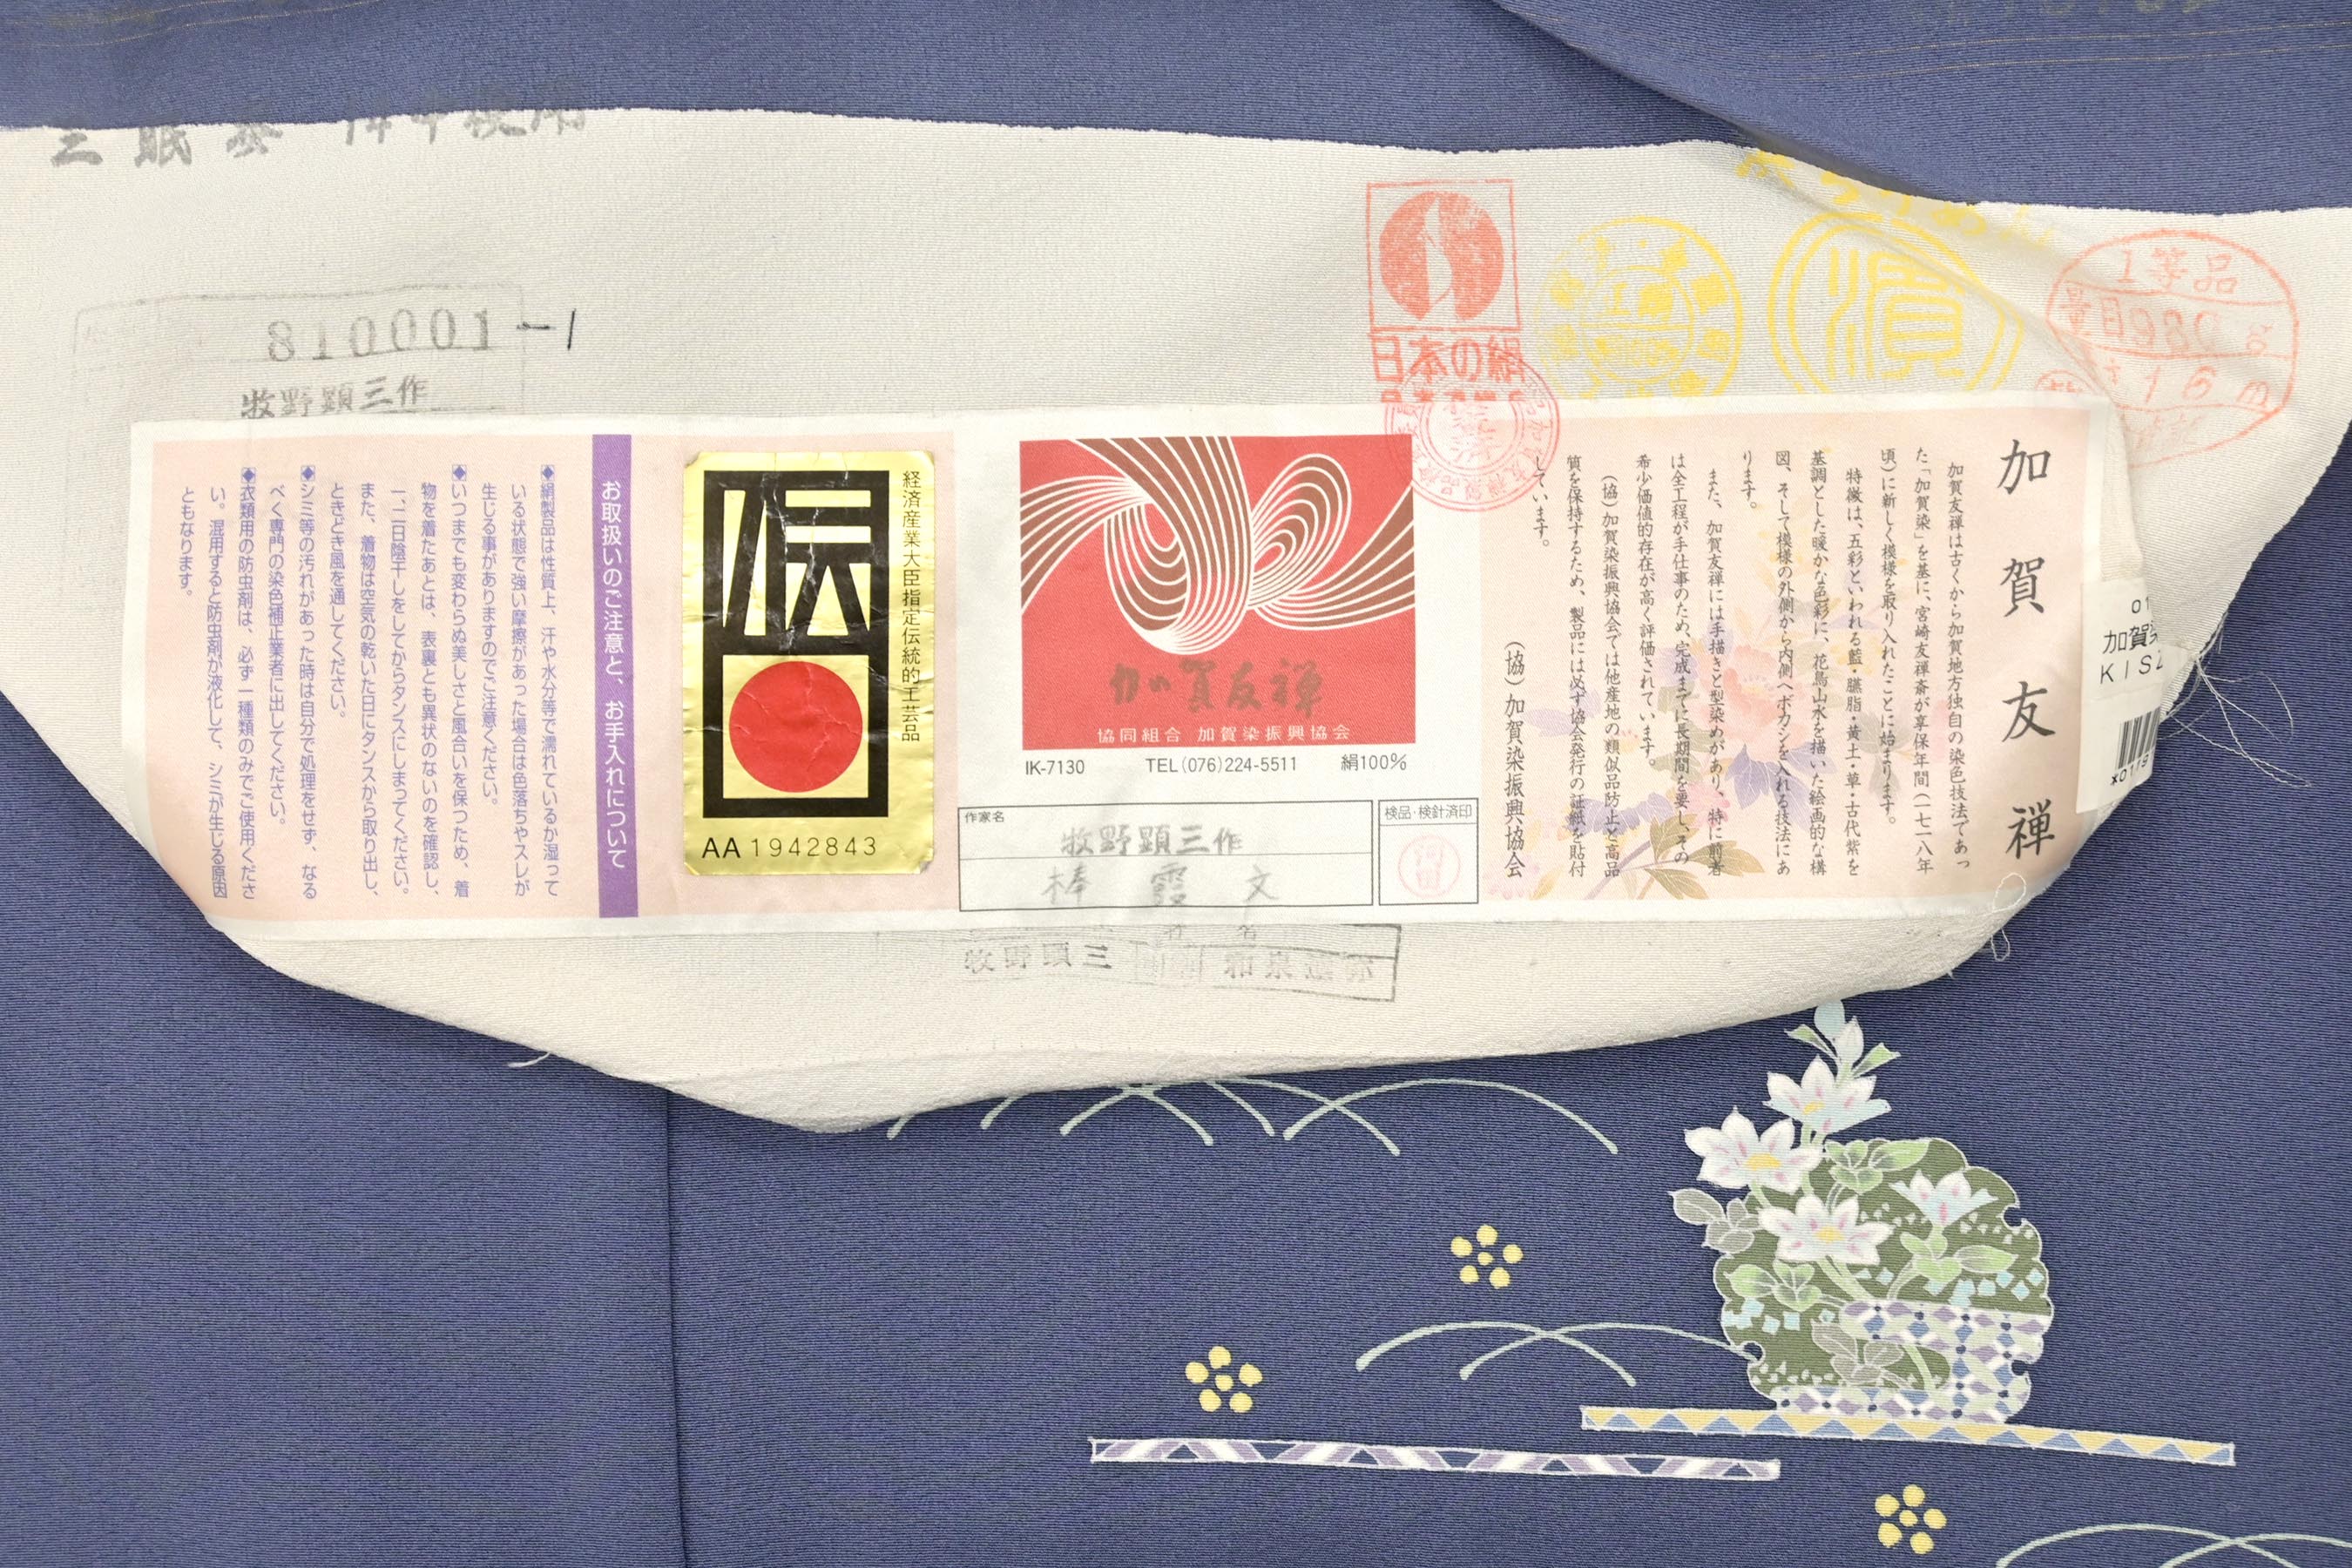 三眠蚕
810001-1
牧野顕三作
日本の絹
濱
1等品
量目980g
加賀友禅
加賀友禅は古くから加賀地方独自の染色技法であっ
た「加賀染」を基に、宮崎友禅斎が享保年間(一七一八年
頃)に新しく模様を取り入れたことに始まります。
特徴は、五彩といわれる藍・臙脂・黄土・草・古代紫を
基調とした暖かな色彩に、花鳥山水を描いた絵画的な構
図、そして模様の外側から内側へボカシを入れる技法にあ
ります。
また、加賀友禅には手描きと型染めがあり、特に前者
は全工程が手仕事のため、完成までに長期間を要し、その
希少価値的存在が高く評価されています。
(協)加賀染振興協会では他産地の類似品防止と高品
質を保持するため、製品には必ず協会発行の証紙を貼付
しています。
(協)加賀染振興協会
加賀友禅
協同組合 加賀染振興協会
IK-7130 TEL(076)224-5511 絹100%
作家名
牧野顕三作
棒霞文
検品・検針済印
河田
経済産業大臣指定伝統的工芸品
伝
AA1942843
お取扱いのご注意と、お手入れについて
◆絹製品は性質上、汗や水分等で濡れているか湿って
いる状態で強い摩擦があった場合は色落ちやスレが
生じる事がありますのでご注意ください。
◆いつまでも変わらぬ美しさと風合いを保つため、着
物を着たあとは、表裏とも異状のないのを確認し、
一、二日陰干しをしてからタンスにしまってください。
また、着物は空気の乾いた日にタンスから取り出し、
ときどき風を通してください。
◆シミ等の汚れがあった時は自分で処理をせず、なる
べく専門の染色補正業者に出してください。
◆衣類用の防虫剤は、必ず一種類のみでご使用くださ
い。混用すると防虫剤が液化して、シミが生じる原因
ともなります。
牧野顕三
01
加賀染
KIS
*0119